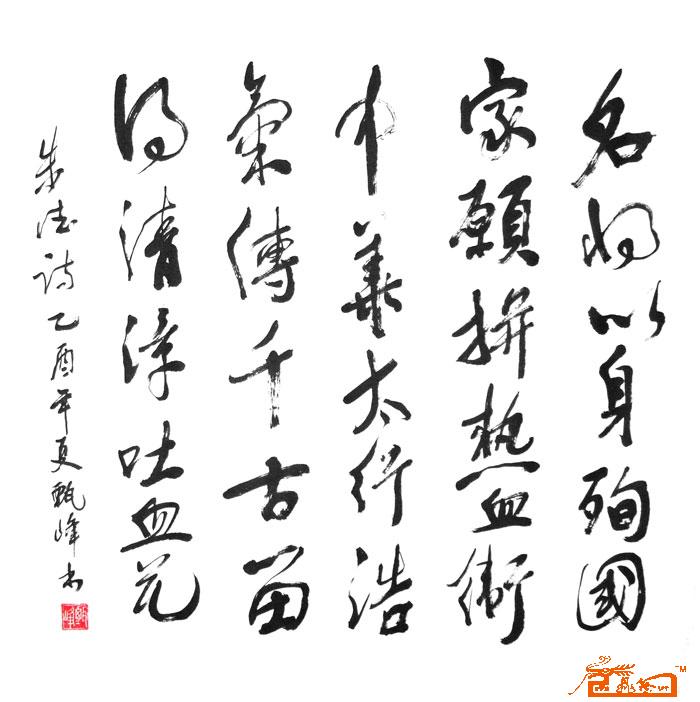 名將以身殉國
家願拼熱血衛
中華太行浩
氣傳千古留
得清漳吐血花
朱德詩乙酉年夏甄峰書